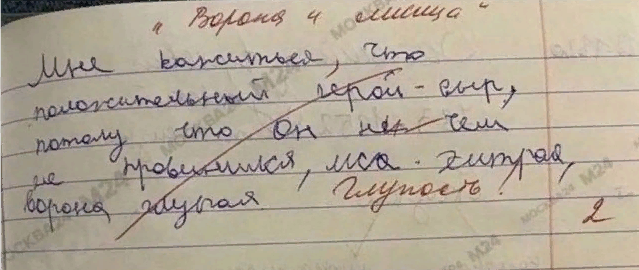 "Ворона и лисица"
Мне кажиться, что
положительный герой - сыр,
потому что он не чем
не провинился, лиса - хитрая,
ворона глупая Глупость!
2